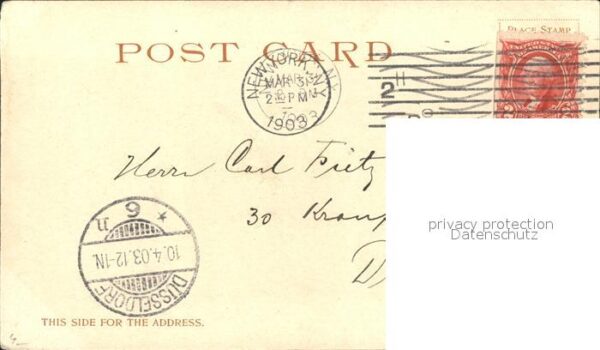 PLACE STAMP
POST CARD
NEW YORK, N.Y.
MAR 31
2 - PM
1903
2
Herrn Carl Fritz
30
privacy protection
Datenschutz
D
6 n
*
10.4.03.12-1N.
DÜSSELDORF
THIS SIDE FOR THE ADDRESS.